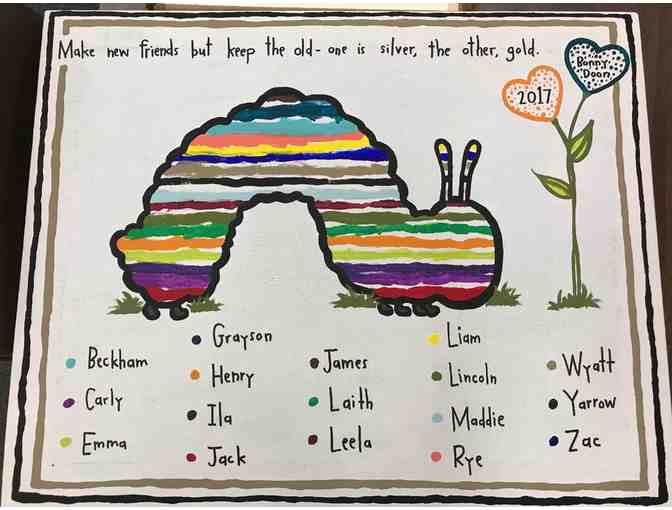 Make new friends but keep the old-one is silver, the other, gold.
2017
Bonny
Doon
Beckham
Carly
Emma
Grayson
Henry
Ila
Jack
James
Laith
Leela
Liam
Lincoln
Maddie
Rye
Wyatt
Yarrow
Zac